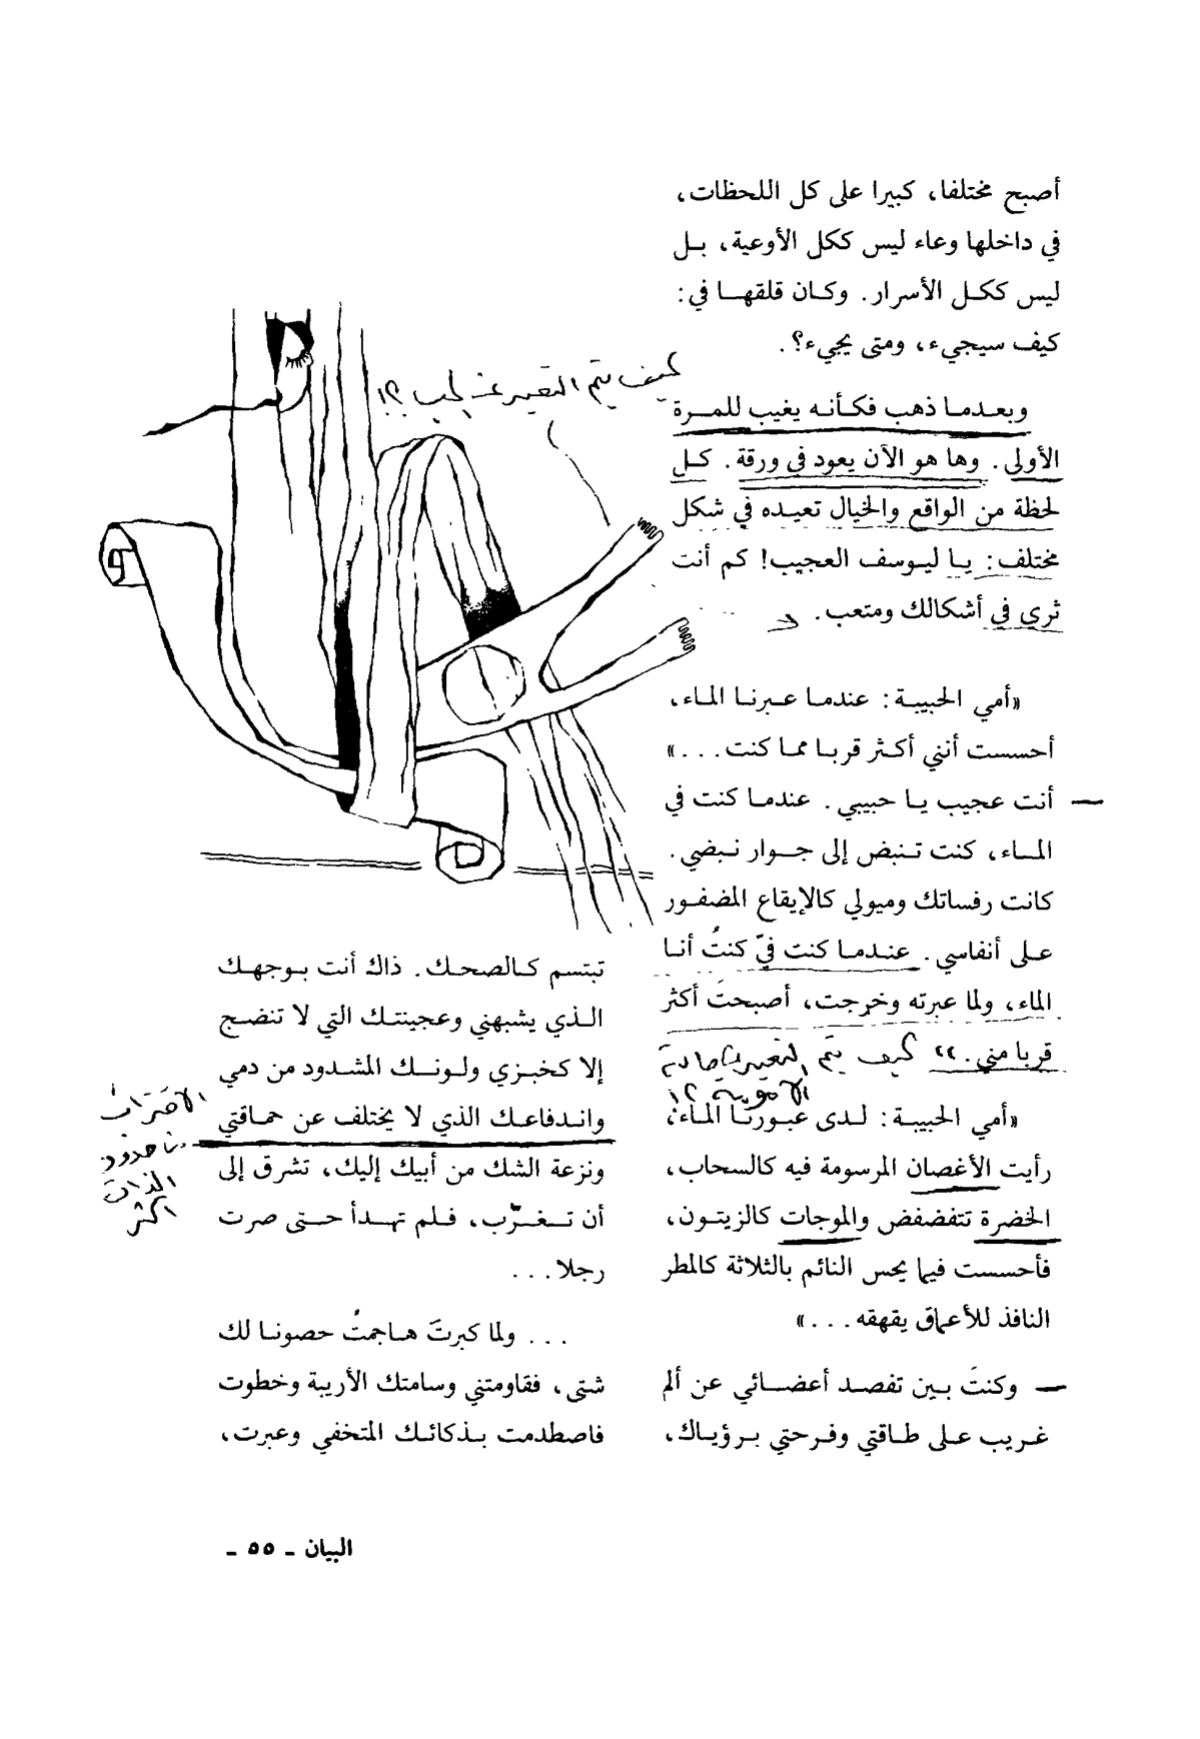 أصبح مختلفا، كبيرا على كل اللحظات،
في داخلها وعاء ليس ككل الأوعية، بل
ليس ككل الأسرار. وكان قلقها في:
كيف سيجيء، ومتى يجيء؟.
وبعدما ذهب فكأنه يغيب للمرة
الأولى. وها هو الآن يعود في ورقة. كل
لحظة من الواقع والخيال تعيده في شكل
مختلف: يا ليوسف العجيب! كم أنت
ثري في أشكالك ومتعب.
كيف يتم التعبير عن الحب ؟!
«أمي الحبيبة: عندما عبرنا الماء،
أحسست أنني أكثر قربا مما كنت...»
— أنت عجيب يا حبيبي. عندما كنت في
الماء، كنت تنبض إلى جوار نبضي.
كانت رفساتك وميولي كالإيقاع المضفور
على أنفاسي. عندما كنت فيّ كنتُ أنا
الماء، ولما عبرته وخرجت، أصبحتَ أكثر
قربا مني.
كيف يتم التعبير
«أمي الحبيبة: لدى عبورنا الماء،
رأيت الأغصان المرسومة فيه كالسحاب،
الخضرة تتفضفض والموجات كالزيتون،
فأحسست فيما يحس النائم بالثلاثة كالمطر
النافذ للأعماق يقهقه...»
— وكنتَ بين تفصد أعضائي عن ألم
غريب على طاقتي وفرحتي برؤياك،
تبتسم كالصحك. ذاك أنت بوجهك
الذي يشبهني وعجينتك التي لا تنضج
إلا كخبزي ولونك المشدود من دمي
واندفاعك الذي لا يختلف عن حماقتي
ونزعة الشك من أبيك إليك، تشرق إلى
أن تغرّب، فلم تهدأ حتى صرت
رجلا...
الاقتراب
من حدود
الذات
أكثر
... ولما كبرتَ هاجمتُ حصونا لك
شتى، فقاومتني وسامتك الأريبة وخطوت
فاصطدمت بذكائك المتخفي وعبرت،
البيان - ٥٥ -